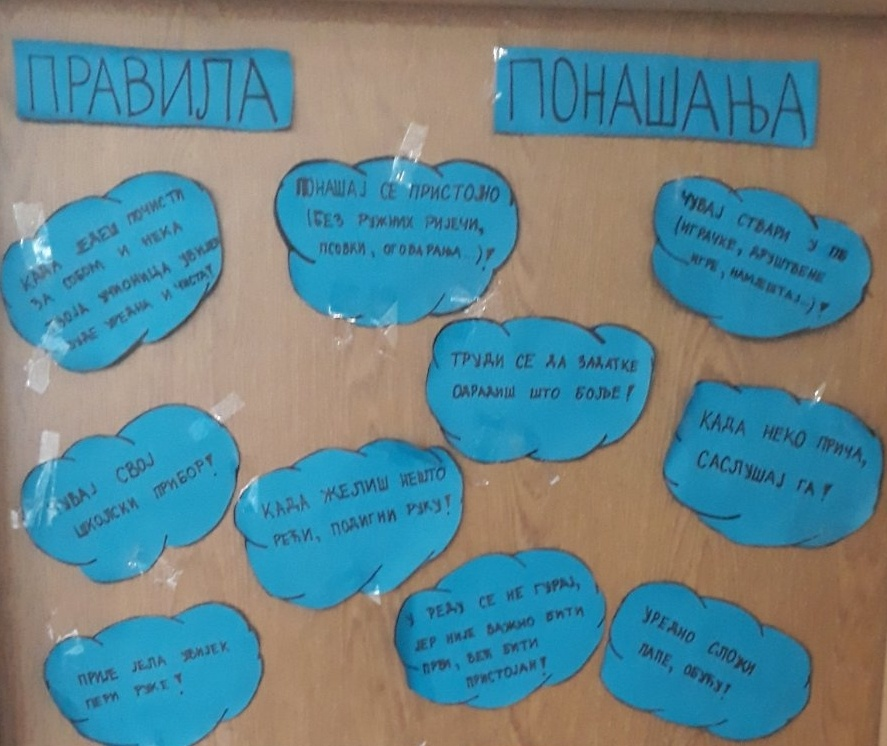 ПРАВИЛА ПОНАШАЊА
КАДА ЈЕДЕШ ПОЧИСТИ
ЗА СОБОМ И НЕКА
ТВОЈА УЧИОНИЦА УВИЈЕК
БУДЕ УРЕДНА И ЧИСТА!
ПОНАШАЈ СЕ ПРИСТОЈНО
(БЕЗ РУЖНИХ РИЈЕЧИ,
ПСОВКИ, ОГОВАРАЊА...)!
ЧУВАЈ СТВАРИ У ПБ
(ИГРАЧКЕ, ДРУШТВЕНЕ
ИГРЕ, НАМЈЕШТАЈ...)!
ТРУДИ СЕ ДА ЗАДАТКЕ
ОДРАДИШ ШТО БОЉЕ!
КАДА НЕКО ПРИЧА,
САСЛУШАЈ ГА!
ЧУВАЈ СВОЈ
ШКОЛСКИ ПРИБОР!
КАДА ЖЕЛИШ НЕШТО
РЕЋИ, ПОДИГНИ РУКУ!
ПРИЈЕ ЈЕЛА УВИЈЕК
ПЕРИ РУКЕ!
У РЕДУ СЕ НЕ ГУРАЈ,
ЈЕР НИЈЕ ВАЖНО БИТИ
ПРВИ, ВЕЋ БИТИ
ПРИСТОЈАН!
УРЕДНО СЛОЖИ
ПАПЕ, ОБУЋУ!